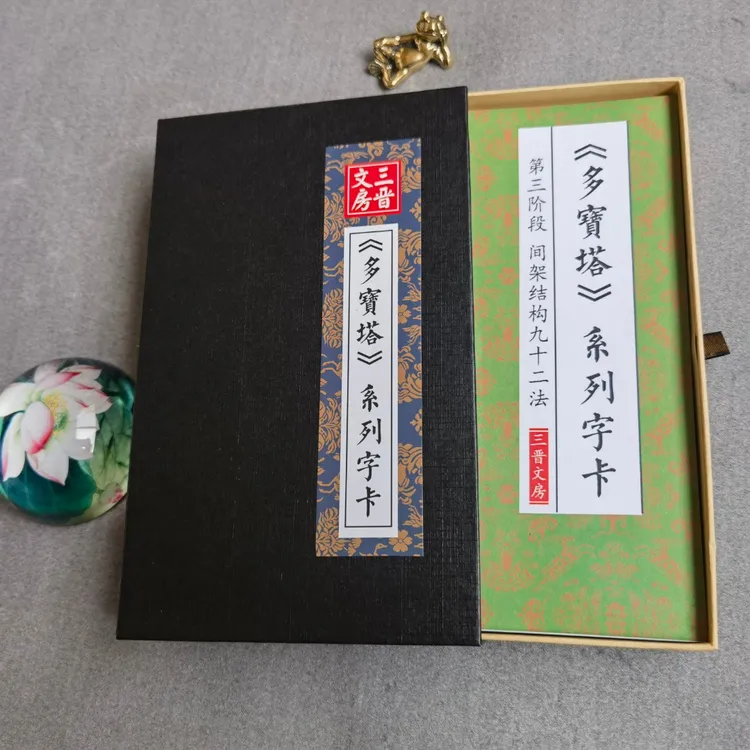 三晋
文房
《多寶塔》系列字卡
《多寶塔》系列字卡
第三阶段 间架结构九十二法
三晋文房